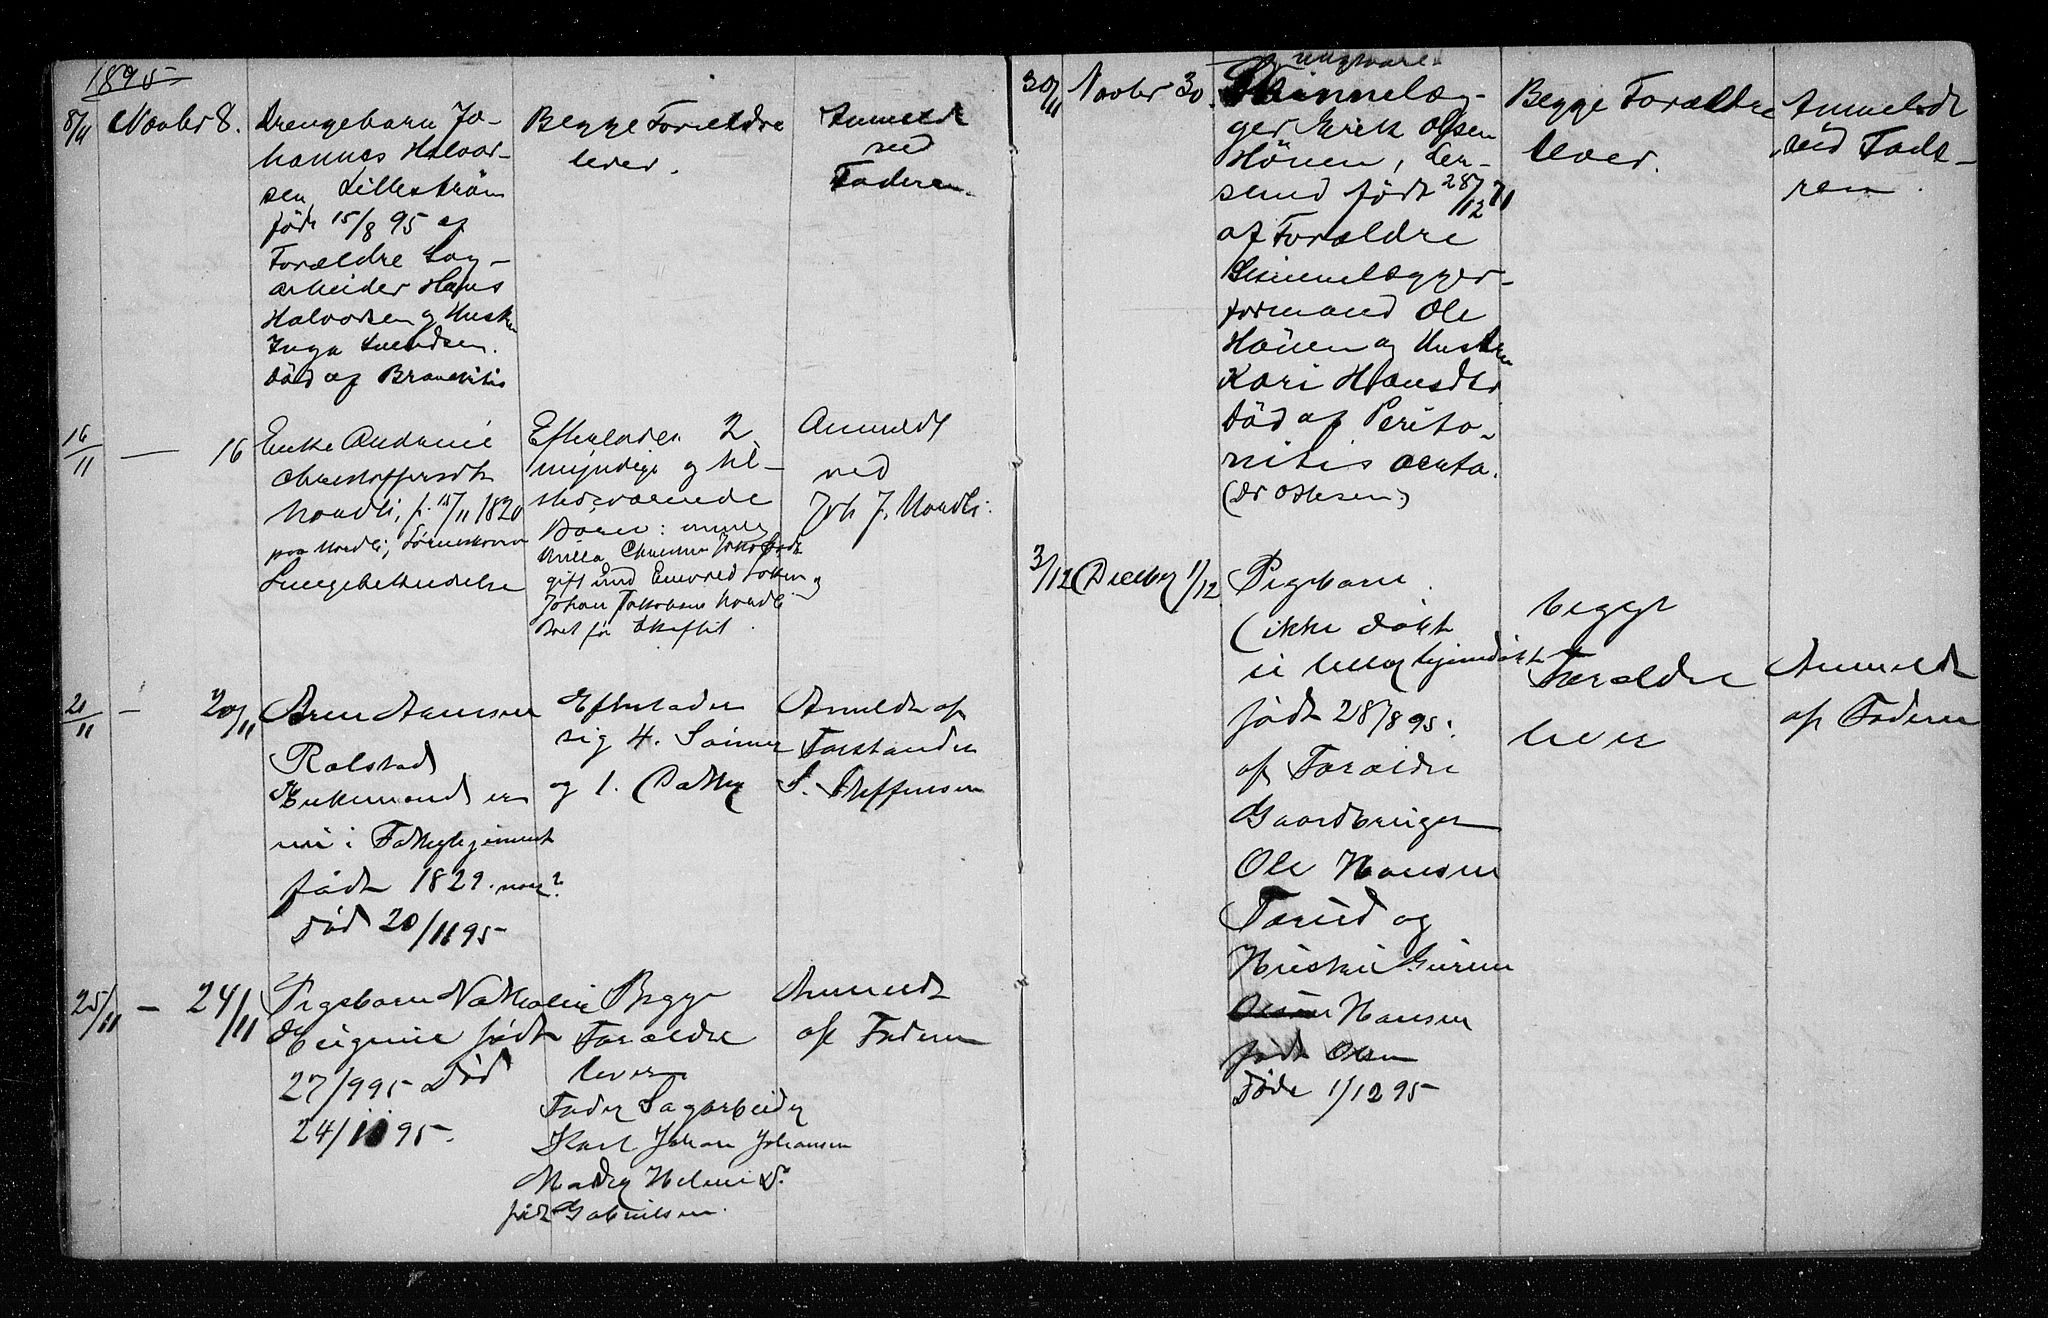 1895
8/11 Novbr 8.
Drengebarn Jo-
hannes Halvor-
sen, Lillestrøm
født 15/8 95 af
Forældre Sag-
arbeider Hans
Halvorsen og Hustru
Inga Svendsen.
Død af Bronchitis
Begge Forældre
lever.
Anmeldt
ved
Faderen.
16/11 — 16
Enke Andrine
Christoffersdt
Nordli, f. 15/11 1820
paa Nordli,
Lungebetændelse
Efterlader 2
myndige og til-
stedeværende
Børn: nemlig
gift med
Johan Jakobsen Nordli
Boet før Skiftet.
Anmeldt
ved
Joh J. Nordli.
20/11 — 20/11
Aren Hansen
Rolstad
Enkemand er
i Fattiglejemet
født 1829.
Død 20/11 95
Efterlader
sig 4. Sønner
og 1. Datter
Anmeldt af
Forstander
S. Steffensen
25/11 — 24/11
Pigebarn Nathalie
Eugenie født
27/9 95 Død
24/11 95.
Begge
Forældre
lever
Fader Sagarbeider
Karl Johan Johansen
Moder Helene D.
født Gabrielsen.
Anmeldt
af Faderen
30/11 Novbr 30.
ungkarl
Skinnelæg-
ger Erik Olsen
Hönen, Ler-
sund født 28/12 71
af Forældre
Skinnelægger-
formand Ole
Hönen og Hustru
Kari Hansdtr.
Død af Perito-
nitis acuta.
Begge Forældre
lever.
Anmeldt
ved Fade-
ren.
3/12 Decbr 1/12
Pigebarn
(ikke døbt
ei heller hjemmedøbt
født 28/8 95.
af Forældre
Gaardbruger
Ole Hansen
Torud og
Hustru Gurine
Hansen
født Olsen
Døde 1/12 95
begge
Forældre
lever
Anmeldt
af Faderen